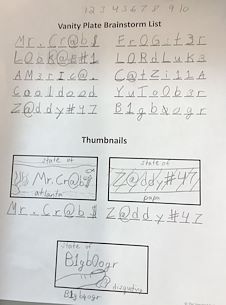 1 2 3 4 5 6 7 8 9 10
Vanity Plate Brainstorm List
Mr.Cr@b$ FrOGit3r
LOok@E#1 LORdLuk3
AM3rIc@. C@tZillA
Cooldood YuToOb3r
Z@ddy#47 B1gb0ogr
Thumbnails
State of
Mr.Cr@b$
atlanta
State of
Z@ddy#47
papa
Mr.Cr@b$ Z@ddy#47
State of
B1gb0ogr
disgusting
B1gb0ogr